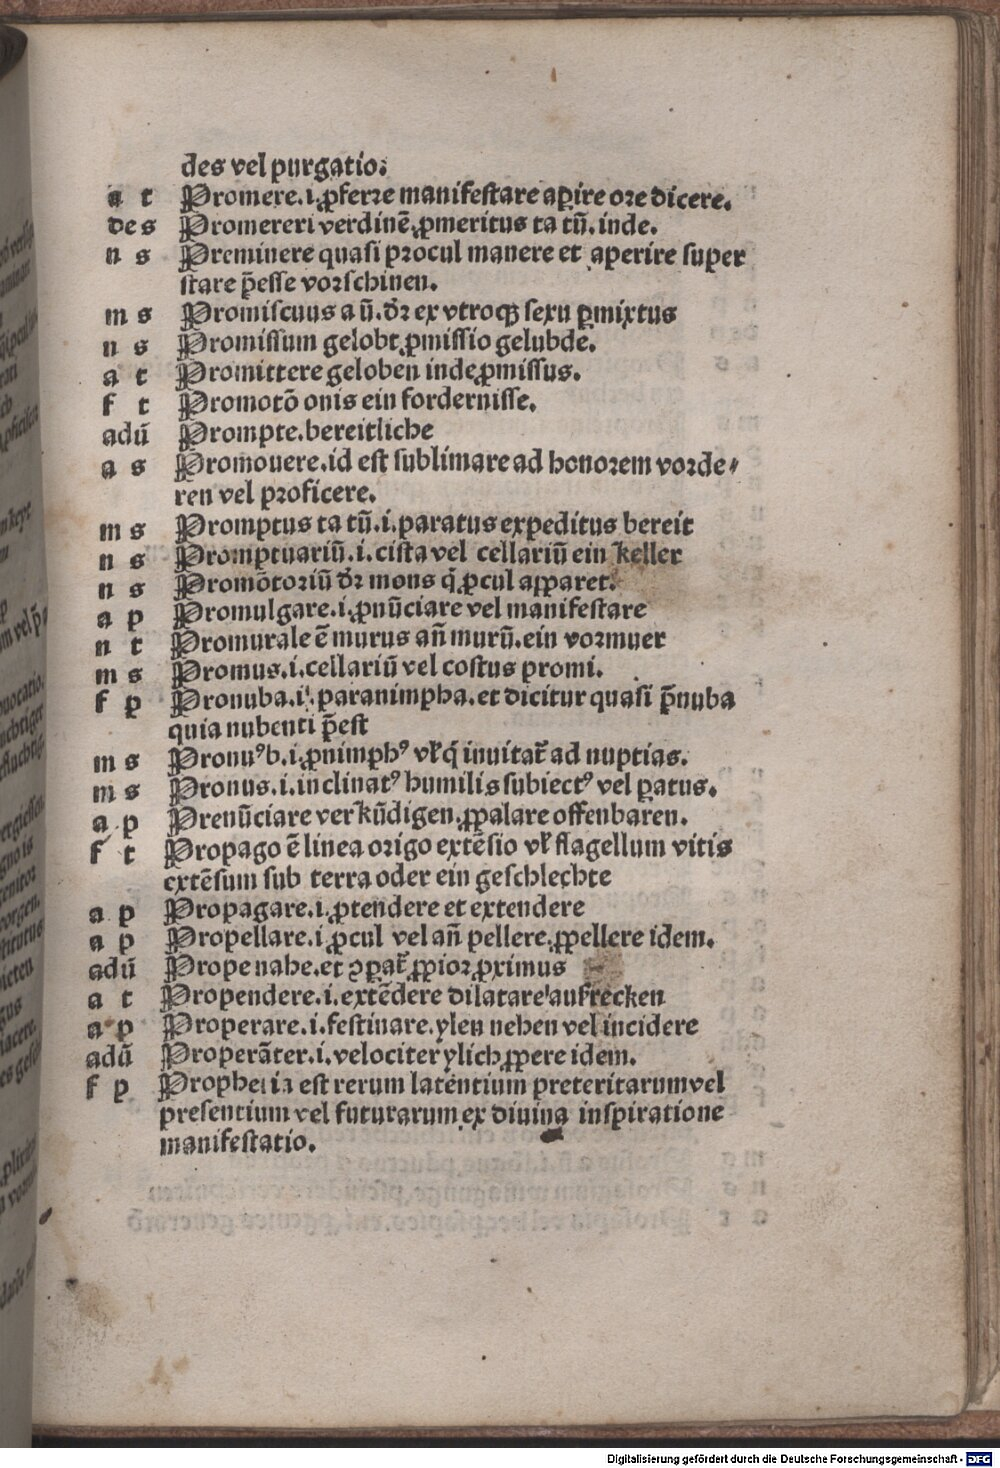 des vel purgatio.
a t Promere.i.ꝓferre manifestare aꝑire ore dicere.
de s Promereri verdinē ꝓmeritus ta tū. inde.
n s Preminere quasi procul manere et aperire super
stare p̄esse vorschinen.
m s Promiscuus a ū. dꝛ ex vtroqꝫ sexu ꝑmixtus
n s Promissum gelobt ꝓmissio gelubde.
a t Promittere geloben inde ꝓmissus.
f t Promotō onis ein fordernisse.
adū Prompte. bereitliche
a s Promouere. id est sublimare ad honorem vorde⸗
ren vel proficere.
m s Promptus ta tū.i. paratus expeditus bereit
n s Promptuariū.i. cista vel cellariū ein keller
n s Promōtoriū dꝛ mons q̄ ꝓcul apparet.
a p Promulgare.i. ꝓnūciare vel manifestare
n t Promurale ē murus an̄ murū. ein vormuer
m s Promus.i. cellariū vel costus promi.
f p Pronuba.i. paranimpha. et dicitur quasi p̄nuba
quia nubenti p̄est
m s Pronuꝰb.i. ꝓnimphꝰ vl̓ q̄ inuitat̄ ad nuptias.
m s Pronus.i. inclinatꝰ humilis subiectꝰ vel ꝑatus.
a p Prenūciare verkūdigen. ꝓpalare offenbaren.
f t Propago ē linea origo extēsio vl̓ flagellum vitis
extēsum sub terra oder ein geschlechte
a p Propagare.i. ꝓtendere et extendere
a p Propellare.i ꝓcul vel an̄ pellere. ꝓpellere idem.
adū Prope nahe. et ꝯꝑat̄ ꝓpior ꝓximus
a t Propendere.i. extēdere dilatare aufrecken
a p Properare.i. festinare. ylen nehen vel incidere
adū Properāter.i. velociter ylich ꝓpere idem.
f p Prophetia est rerum latentium preteritarum vel
presentium vel futurarum ex diuina inspiratione
manifestatio.
Digitalisierung gefördert durch die Deutsche Forschungsgemeinschaft - DFG